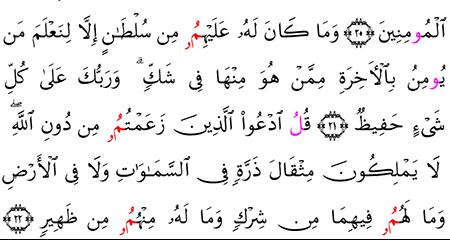 ٱلْمُومِنِينَ ٢٠ وَمَا كَانَ لَهُۥ عَلَيْهِمُۥ مِن سُلْطَٰنٍ إِلَّا لِنَعْلَمَ مَن
يُومِنُ بِٱلْأَخِرَةِ مِمَّنْ هُوَ مِنْهَا فِى شَكٍّ ۗ وَرَبُّكَ عَلَىٰ كُلِّ
شَىْءٍ حَفِيظٌ ٢١ قُلُ ٱدْعُوا۟ ٱلَّذِينَ زَعَمْتُمُۥ مِن دُونِ ٱللَّهِ ۖ
لَا يَمْلِكُونَ مِثْقَالَ ذَرَّةٍ فِى ٱلسَّمَٰوَٰتِ وَلَا فِى ٱلْأَرْضِ
وَمَا لَهُمُۥ فِيهِمَا مِن شِرْكٍ وَمَا لَهُۥ مِنْهُمُۥ مِن ظَهِيرٍ ٢٢